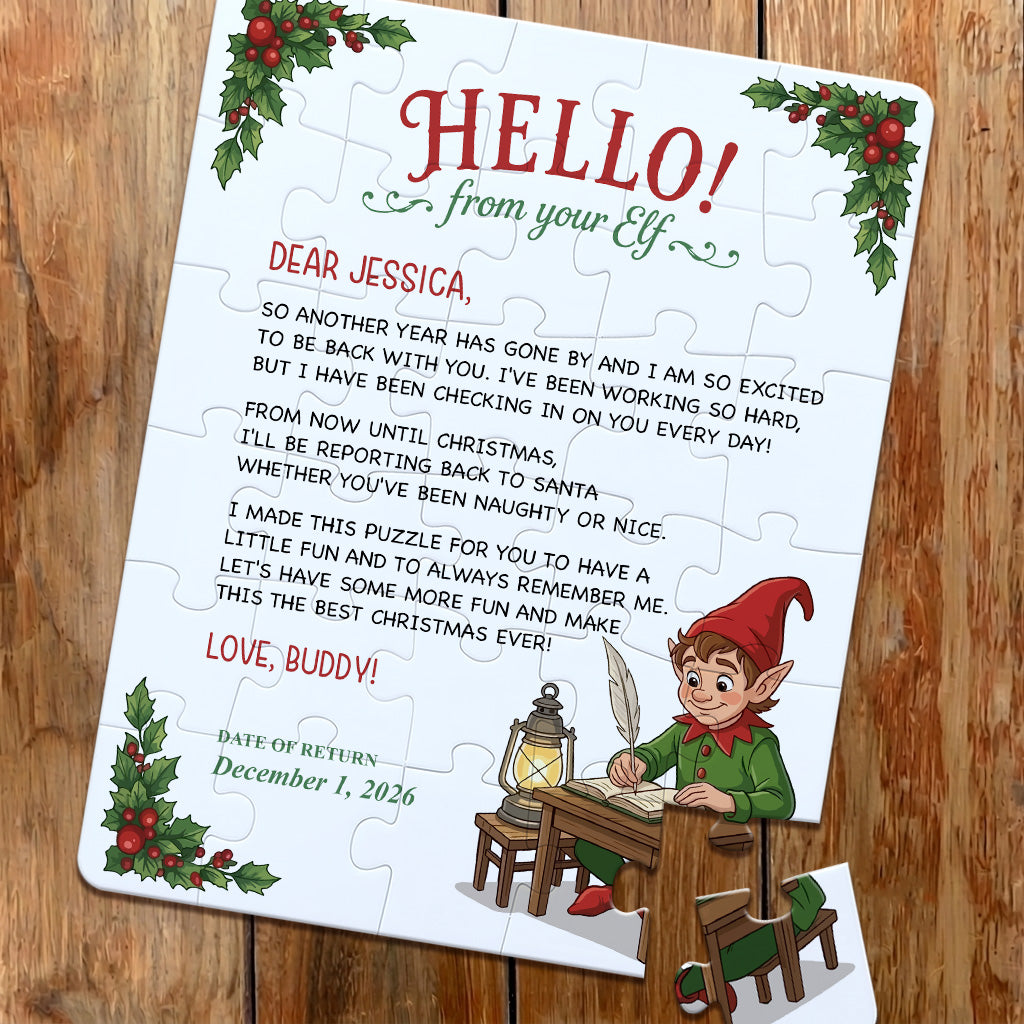 HELLO!
from your Elf
DEAR JESSICA,
SO ANOTHER YEAR HAS GONE BY AND I AM SO EXCITED
TO BE BACK WITH YOU. I'VE BEEN WORKING SO HARD,
BUT I HAVE BEEN CHECKING IN ON YOU EVERY DAY!
FROM NOW UNTIL CHRISTMAS,
I'LL BE REPORTING BACK TO SANTA
WHETHER YOU'VE BEEN NAUGHTY OR NICE.
I MADE THIS PUZZLE FOR YOU TO HAVE A
LITTLE FUN AND TO ALWAYS REMEMBER ME.
LET'S HAVE SOME MORE FUN AND MAKE
THIS THE BEST CHRISTMAS EVER!
LOVE, BUDDY!
DATE OF RETURN
December 1, 2026